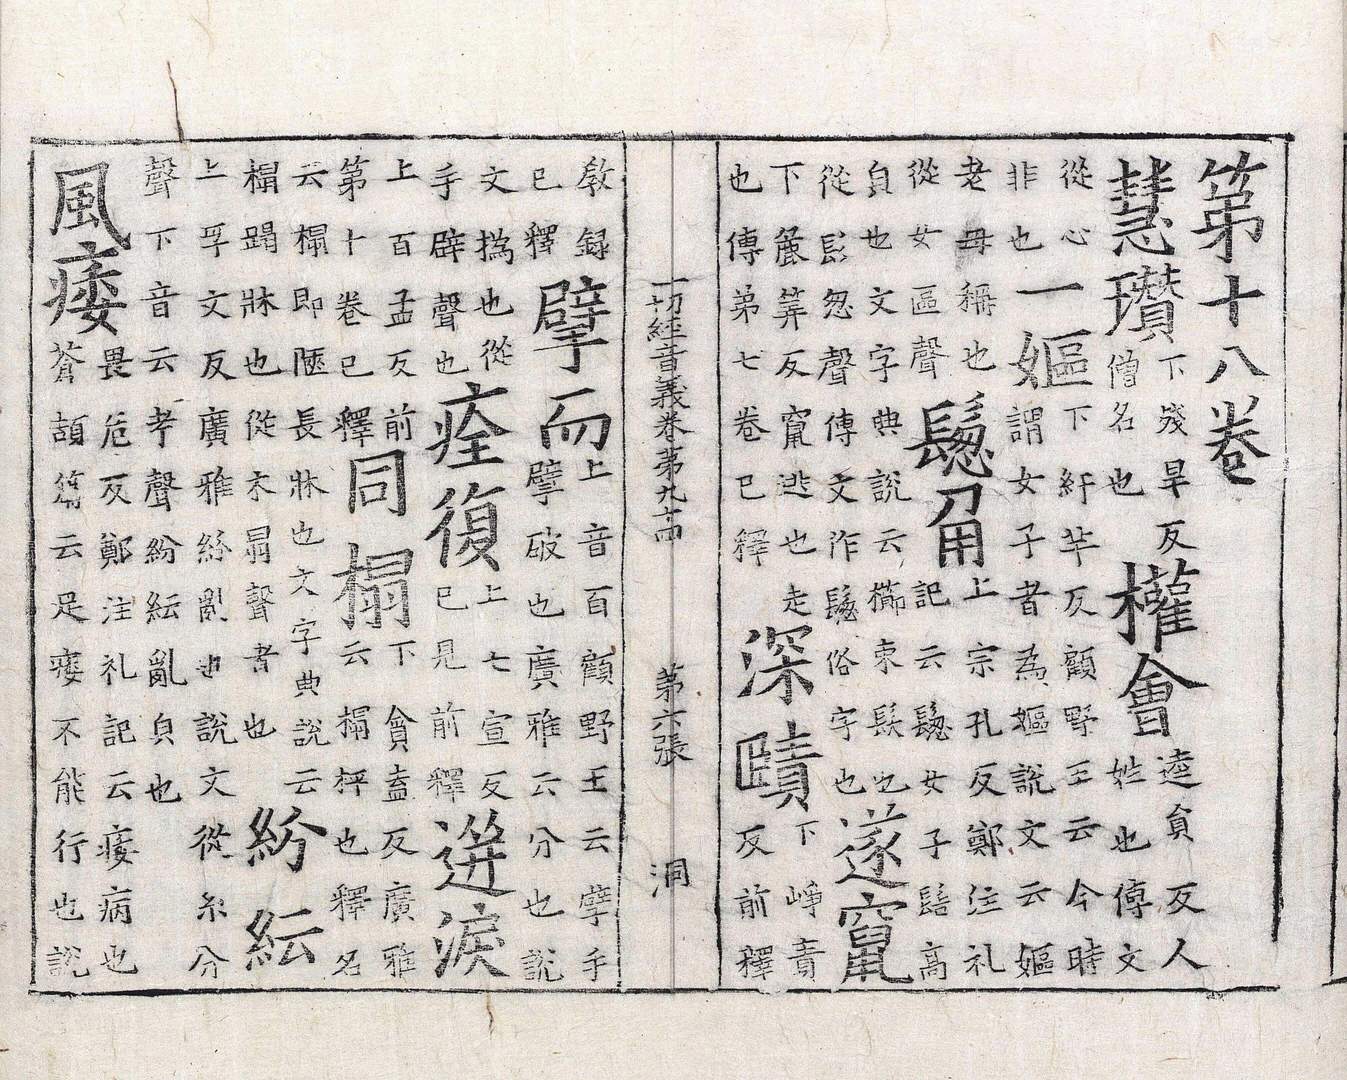 第十八卷
慧瓚
下殘旱反
僧名也
權會
逵貟反人
姓也傳文
從心
非也
一嫗
下紆芋反顧野王云今時
謂女子者為嫗說文云嫗
老母稱也
從女區聲
角
上宗孔反鄭注礼
記云女子髻高
貟也文字典說云櫛束髮也
從髟忽聲傳文作俗字也
遂竄
下麄筭反竄逃也走
也傳弟七卷已釋
深賾
下崢責
反前釋
一切經音義卷第九十四 第六張 洞
教録
已釋
擘而
上音百顧野王云擘手
擘破也廣雅云分也說
文撝也從
手辟聲也
痊復
上七宣反
已見前釋
迸淚
上百孟反前
第十卷已釋
同榻
下貪盍反廣雅
云榻枰也釋名
云榻即陿長牀也文字典說云
榻蹋牀也從木𦐇聲書也
紛紜
上孚文反廣雅紛亂也說文從糸分
聲下音云考聲紛紜亂貟也
風痿
畏危反鄭注礼記云痿病也
蒼頡篇云足痿不能行也說